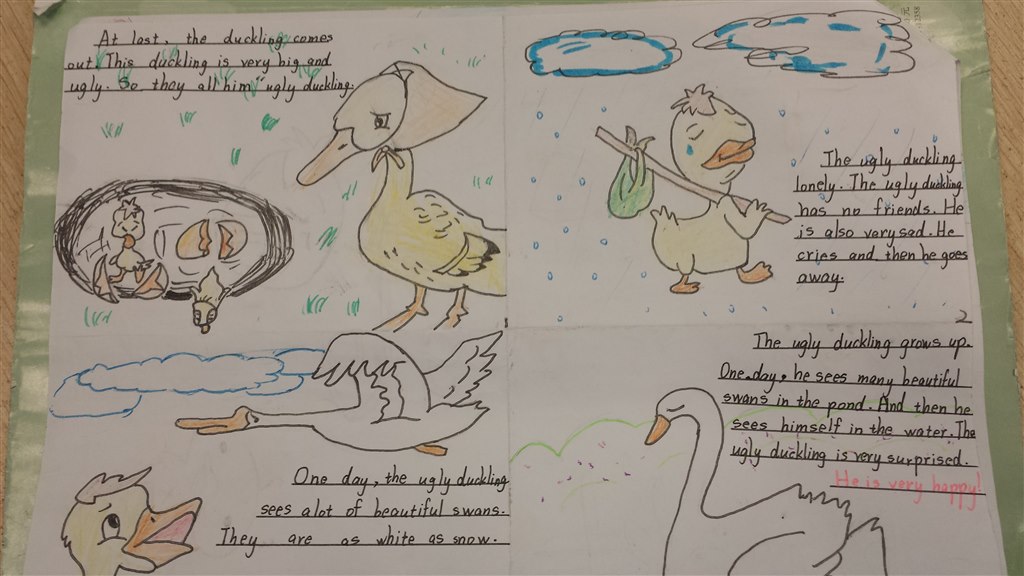 At last, the duckling comes
out. This duckling is very big and
ugly. So they all him ugly duckling.
The ugly duckling
lonely. The ugly duckling
has no friends. He
is also very sad. He
cries and then he goes
away.
2
One day, the ugly duckling
sees alot of beautiful swans.
They are as white as snow.
The ugly duckling grows up.
One day, he sees many beautiful
swans in the pond. And then he
sees himself in the water. The
ugly duckling is very surprised.
He is very happy!